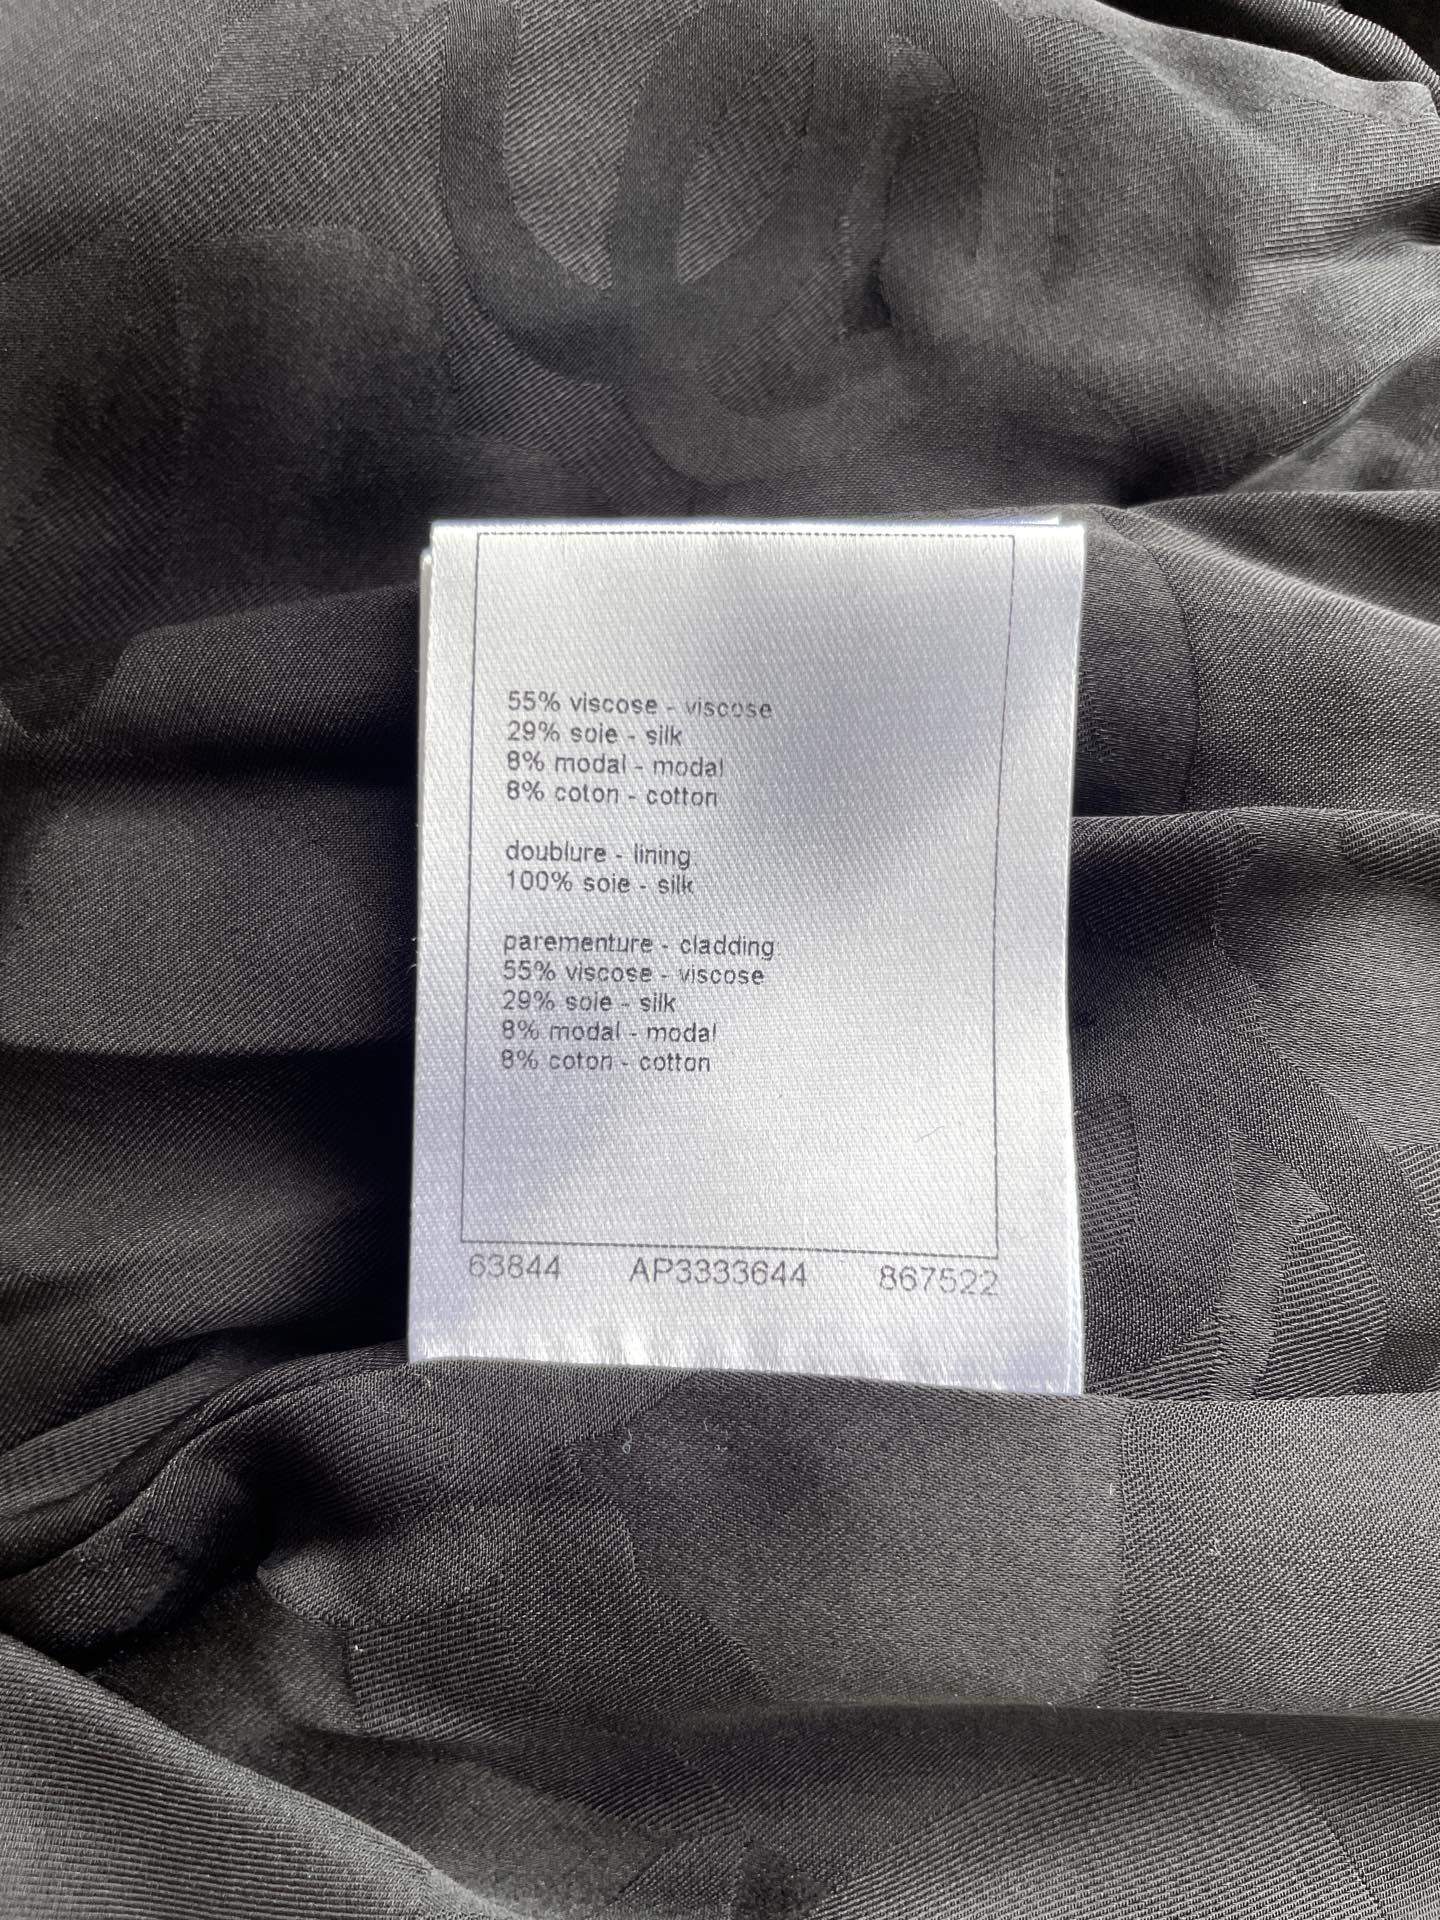 55% viscose - viscose
29% soie - silk
8% modal - modal
8% coton - cotton
doublure - lining
100% soie - silk
parementure - cladding
55% viscose - viscose
29% soie - silk
8% modal - modal
8% coton - cotton
63844 AP3333644 867522